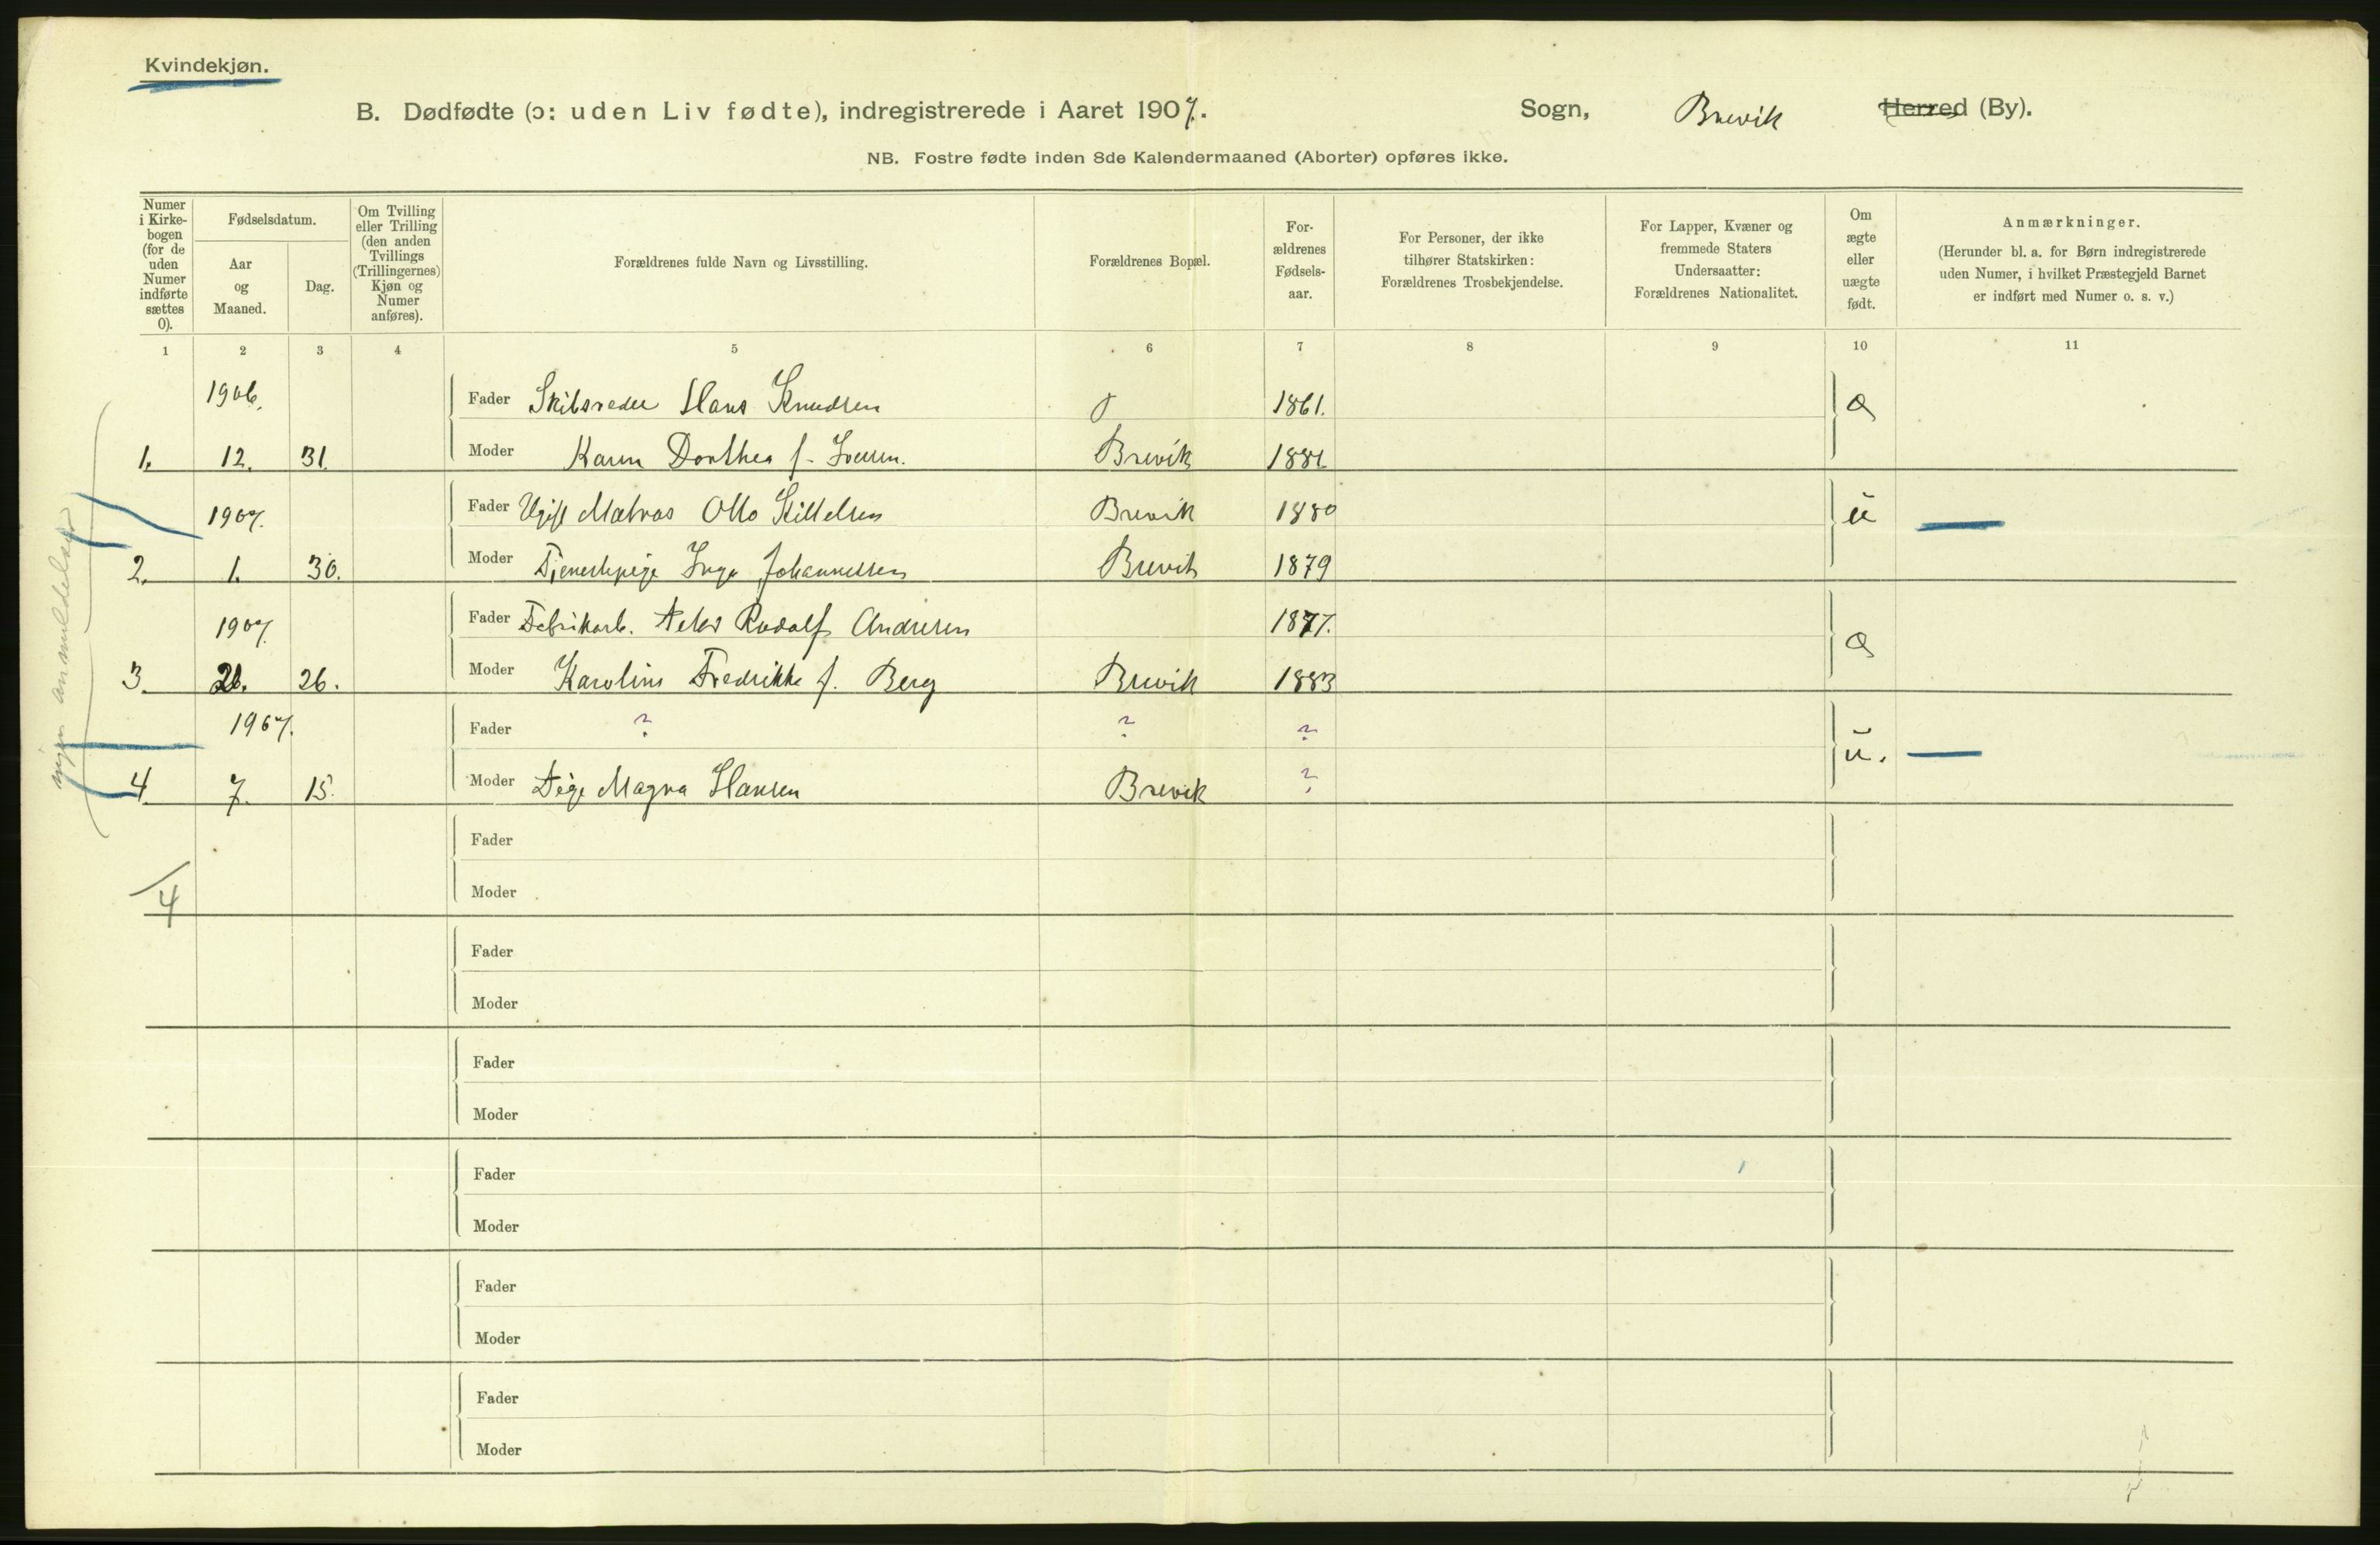 Kvindekjøn.
B. Dødfødte (ɔ: uden Liv fødte), indregistrerede i Aaret 1907. Sogn, Brevik Herred (By).
NB. Fostre fødte inden 8de Kalendermaaned (Aborter) opføres ikke.
Numer i Kirke-bogen (for de uden Numer indførte sættes 0).
Fødselsdatum.
Aar og Maaned.
Dag.
Om Tvilling eller Trilling (den anden Tvillings (Trillingernes) Kjøn og Numer anføres).
Forældrenes fulde Navn og Livsstilling.
Forældrenes Bopæl.
For-ældrenes Fødsels-aar.
For Personer, der ikke tilhører Statskirken: Forældrenes Trosbekjendelse.
For Lapper, Kvæner og fremmede Staters Undersaatter: Forældrenes Nationalitet.
Om ægte eller uægte født.
Anmærkninger.
(Herunder bl. a. for Børn indregistrerede uden Numer, i hvilket Præstegjeld Barnet er indført med Numer o. s. v.)
1 2 3 4 5 6 7 8 9 10 11
1906. Fader Skibsreder Hans Knudsen 1861. a
1. 12. 31. Moder Karen Dorthea f. Iversen. Brevik 1881
1907. Fader Ugift Matros Otto Kittelsen Brevik 1880 ŭ
2. 1. 30. Moder Tjenestepige Inga Johannessen Brevik 1879
1907. Fader Fabrikarb. Peter Rudolf Andresen 1877. a
3. 26. Moder Karoline Fredrikke f. Berg Brevik 1883
1907. Fader ? ? ? ŭ.
4. 7. 15. Moder Pige Magna Hansen Brevik ?
Fader
Moder
4
Fader
Moder
Fader
Moder
Fader
Moder
Fader
Moder
Fader
Moder